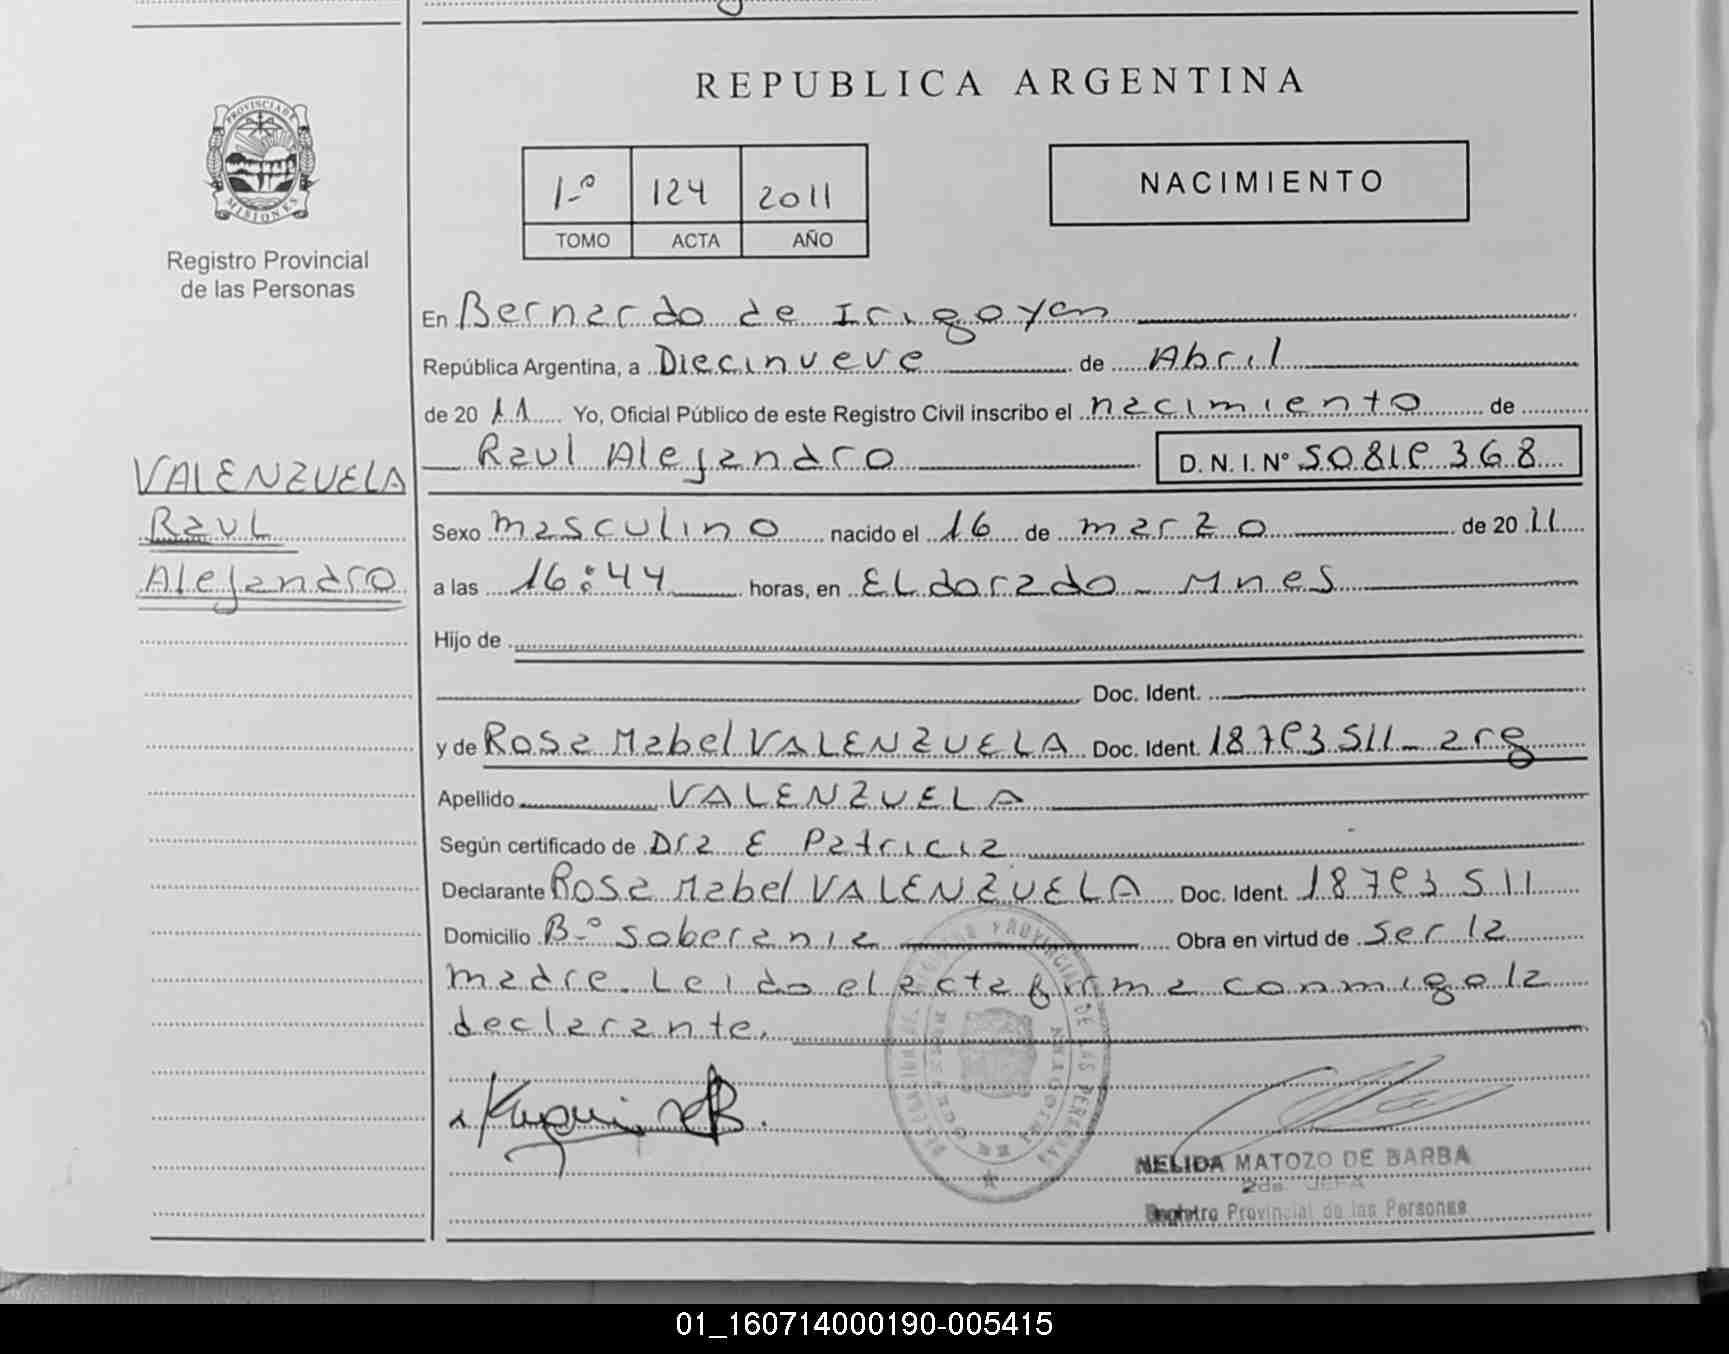 PROVINCIA DE
MISIONES
Registro Provincial
de las Personas
VALENZUELA
Raul
Alejandro
REPUBLICA ARGENTINA
1-º 124 2011
TOMO ACTA AÑO
NACIMIENTO
En Bernardo de Irigoyen
República Argentina, a Diecinueve de Abril
de 2011 Yo, Oficial Público de este Registro Civil inscribo el nacimiento de
Raul Alejandro D. N. I. Nº
Sexo masculino nacido el 16 de marzo de 2011
a las 16:44 horas, en ELdorado - Mnes
Hijo de
Doc. Ident.
y de Rosa Mabel VALENZUELA Doc. Ident. 18703511- arg
Apellido VALENZUELA
Según certificado de Dra E Patricia
Declarante Rosa Mabel VALENZUELA Doc. Ident. 18703511
Domicilio B-º Soberania Obra en virtud de ser la
madre. Leido el acta firma conmigo la
declarante.
NELIDA MATOZO DE BARBA
2da. JEFA
Registro Provincial de las Personas
01_160714000190-005415